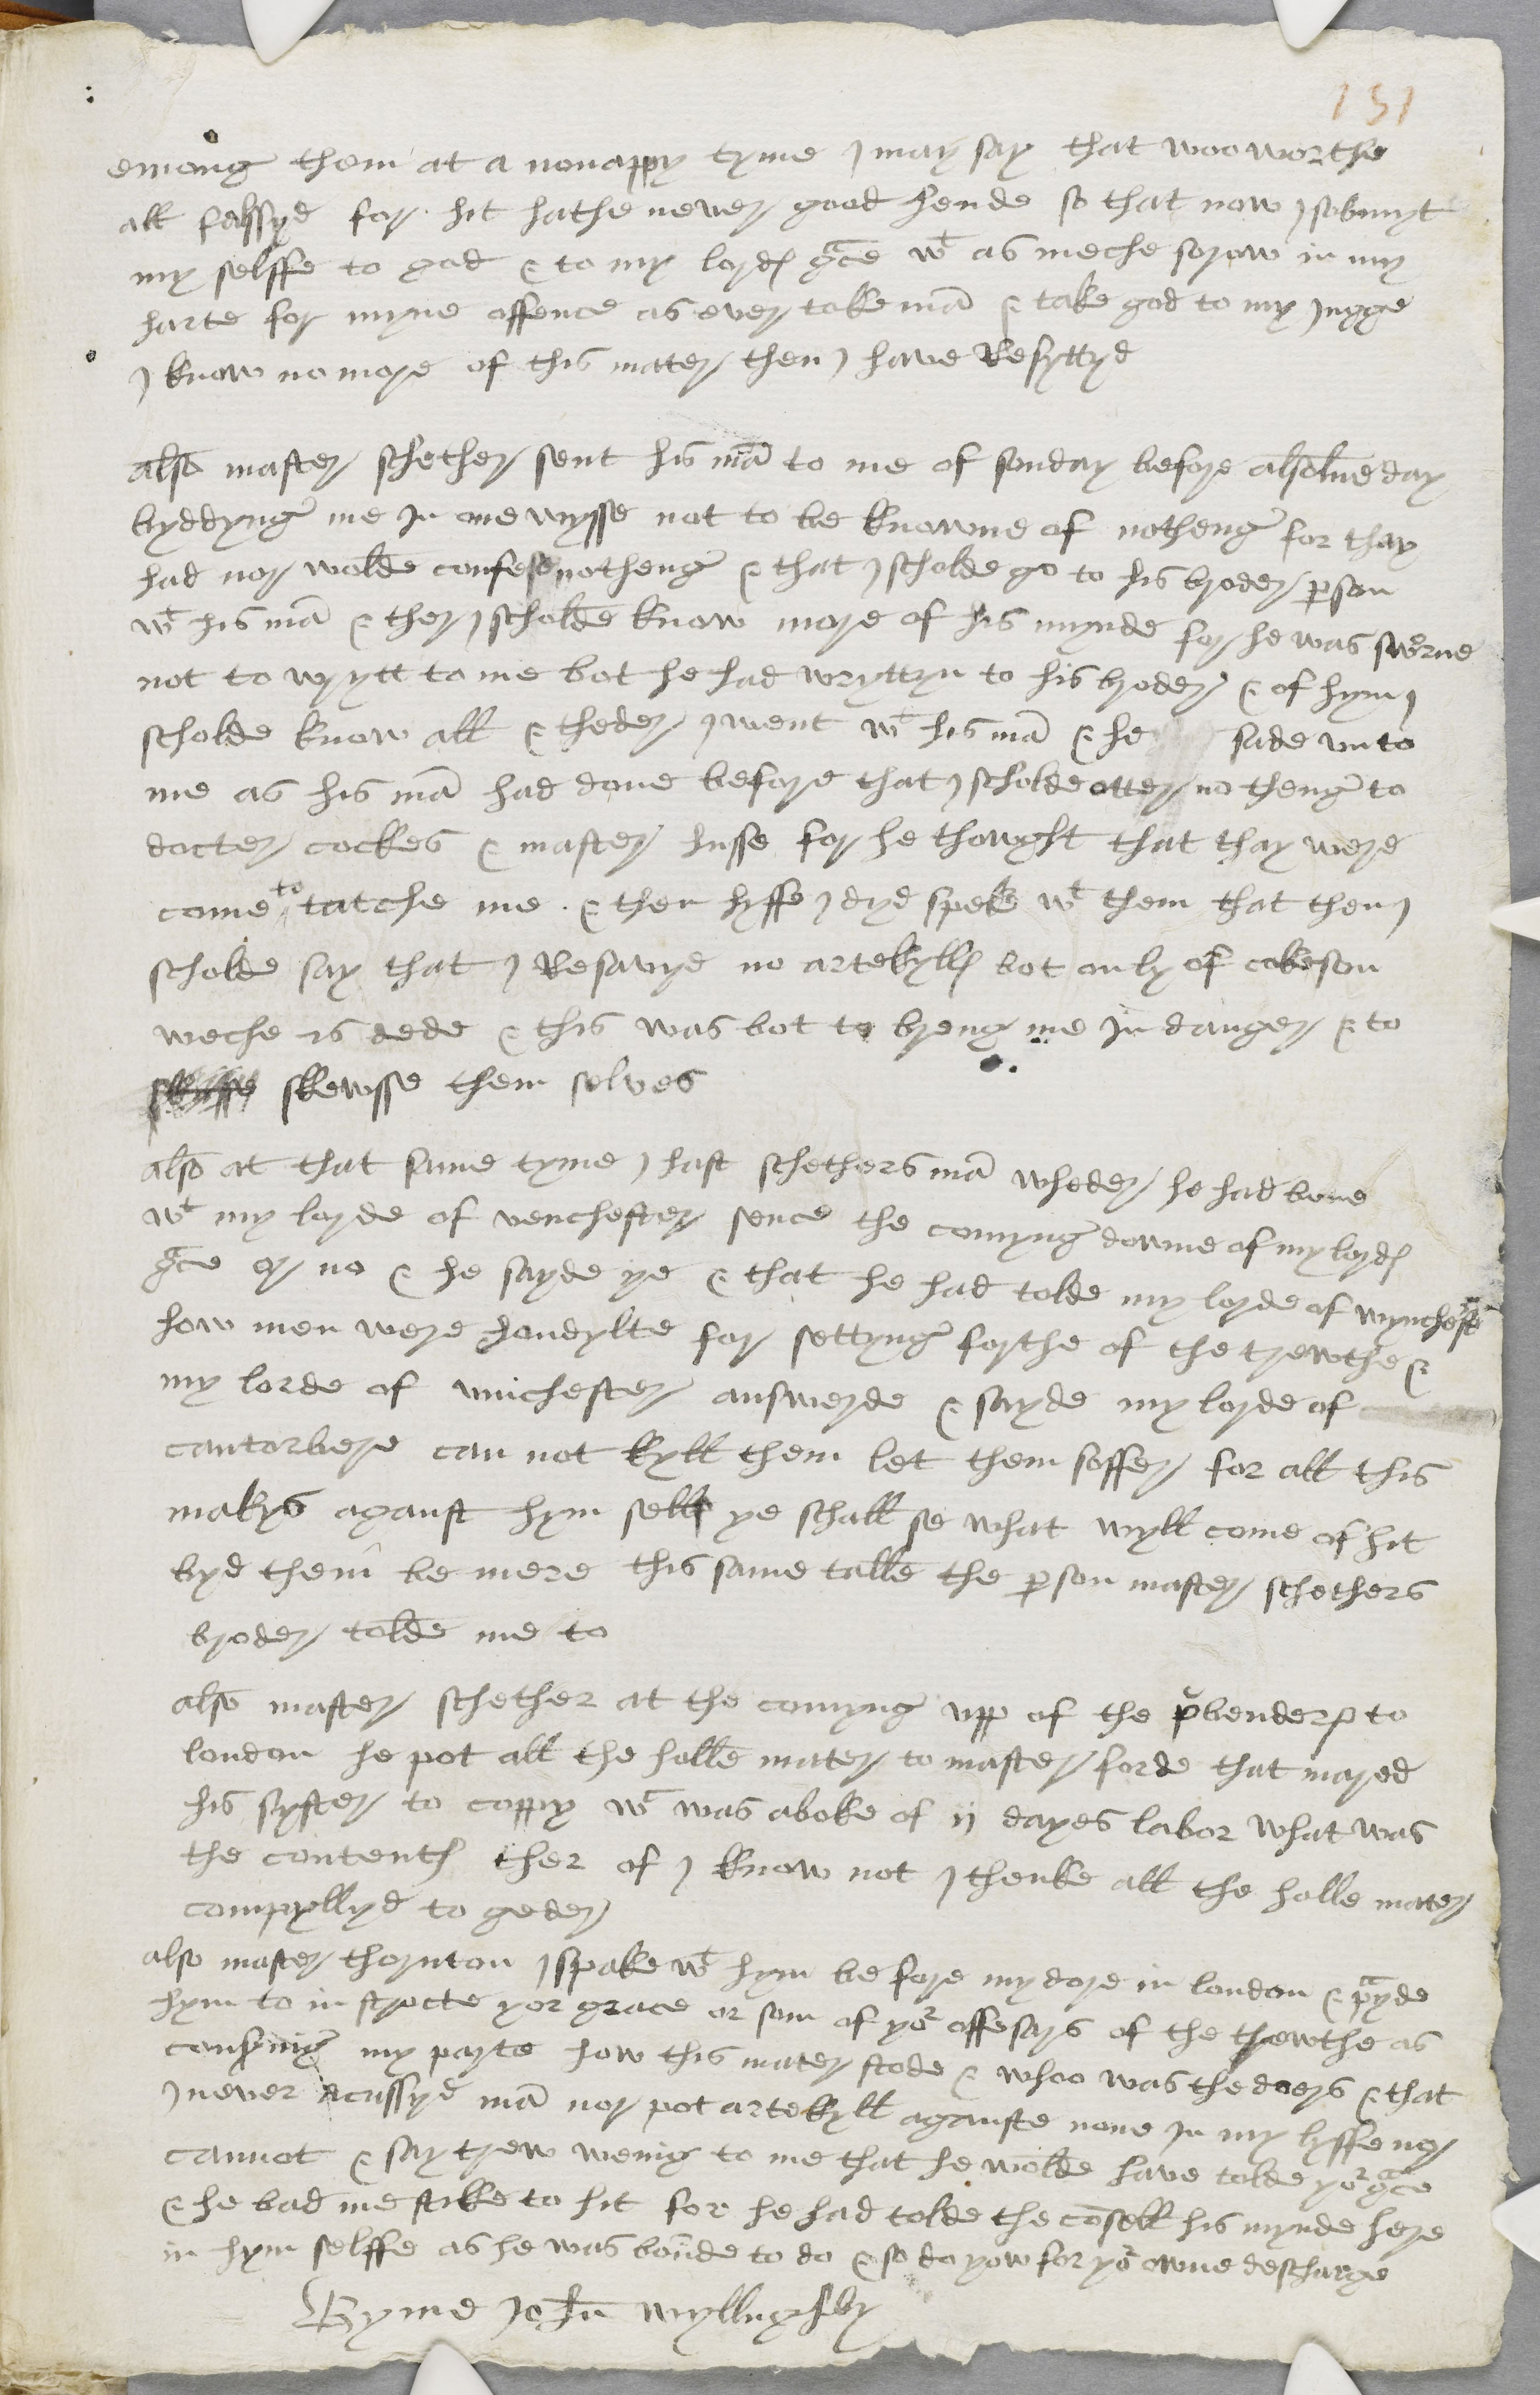 151
emong them at a nonappy tyme I may say that woo worthe
all falssyd for hit hathe never good hende so that now I sobmyt
my selffe to god & to my lordes gce wt as meche sorow in my
harte for myne offence as ever toke mā & take god to my Jugge
I know no more of this mater then I have Resyttyd
also master schether sent his mā to me of sonday before day
byddyng me In one wysse not to be knowne of notheng for thay
had nor wolde confese notheng & that I scholde go to his broder pson
wt his mā & ther I scholde know more of his mynde for he was sworne
not to wrytt to me bot he had wryttyn to his broder & of hym I
scholde know all & theder I went wt his mā & he sade unto
me as his mā had done before that I scholde otter no theng to
docter cockes & master husse for he thowght that thay were
come to tatche me & then hyffe I dyd speke wt them that then I
scholde say that I Resavyd no artekylles bot only of cokeson
weche is dede & this was bot to breng me In danger & to
skewsse them selves
also at that same tyme I hast schethers mā wheder he had bene
wt my lorde of venchester sence the comyng downe of my lordes
gce or no & he sayde ye & that he had tolde my lorde of wynchester
how men were handylte for settyng forthe of the trewthe &
my lorde of winchester answerde & sayde my lorde of
cantorbere can not kyll them let them soffer for all this
makys aganst hym self ye schall se what wyll come of hit
byd them be mere this same talle the pson master schethers
broder tolde me to
also master schether at the comyng upp of the pbenders to
london he pot all the holle mater to master forde that mared
his syster to coppy wt was a boke of ij dayes labor what was
the contentes ther of I know not I thenke all the holle mater
compyllyd to geder
also master thornton I spake wt hym be fore my dore in london & prayde
hym to in strocte yor grace or som of yor offesars of the trewthe as
my parte how this mater stode & whoo was the doers & that
I never acussyd mā nor pot artekyll aganste none In my lyffe nor
cannot & say trew to me that he wolde have tolde yor gce
& he bad me stike to hit for he had tolde the cōsell his mynde here
in hym selffe as he was bounde to do & so do yow for yor owne descharge
By me John Wyllughby